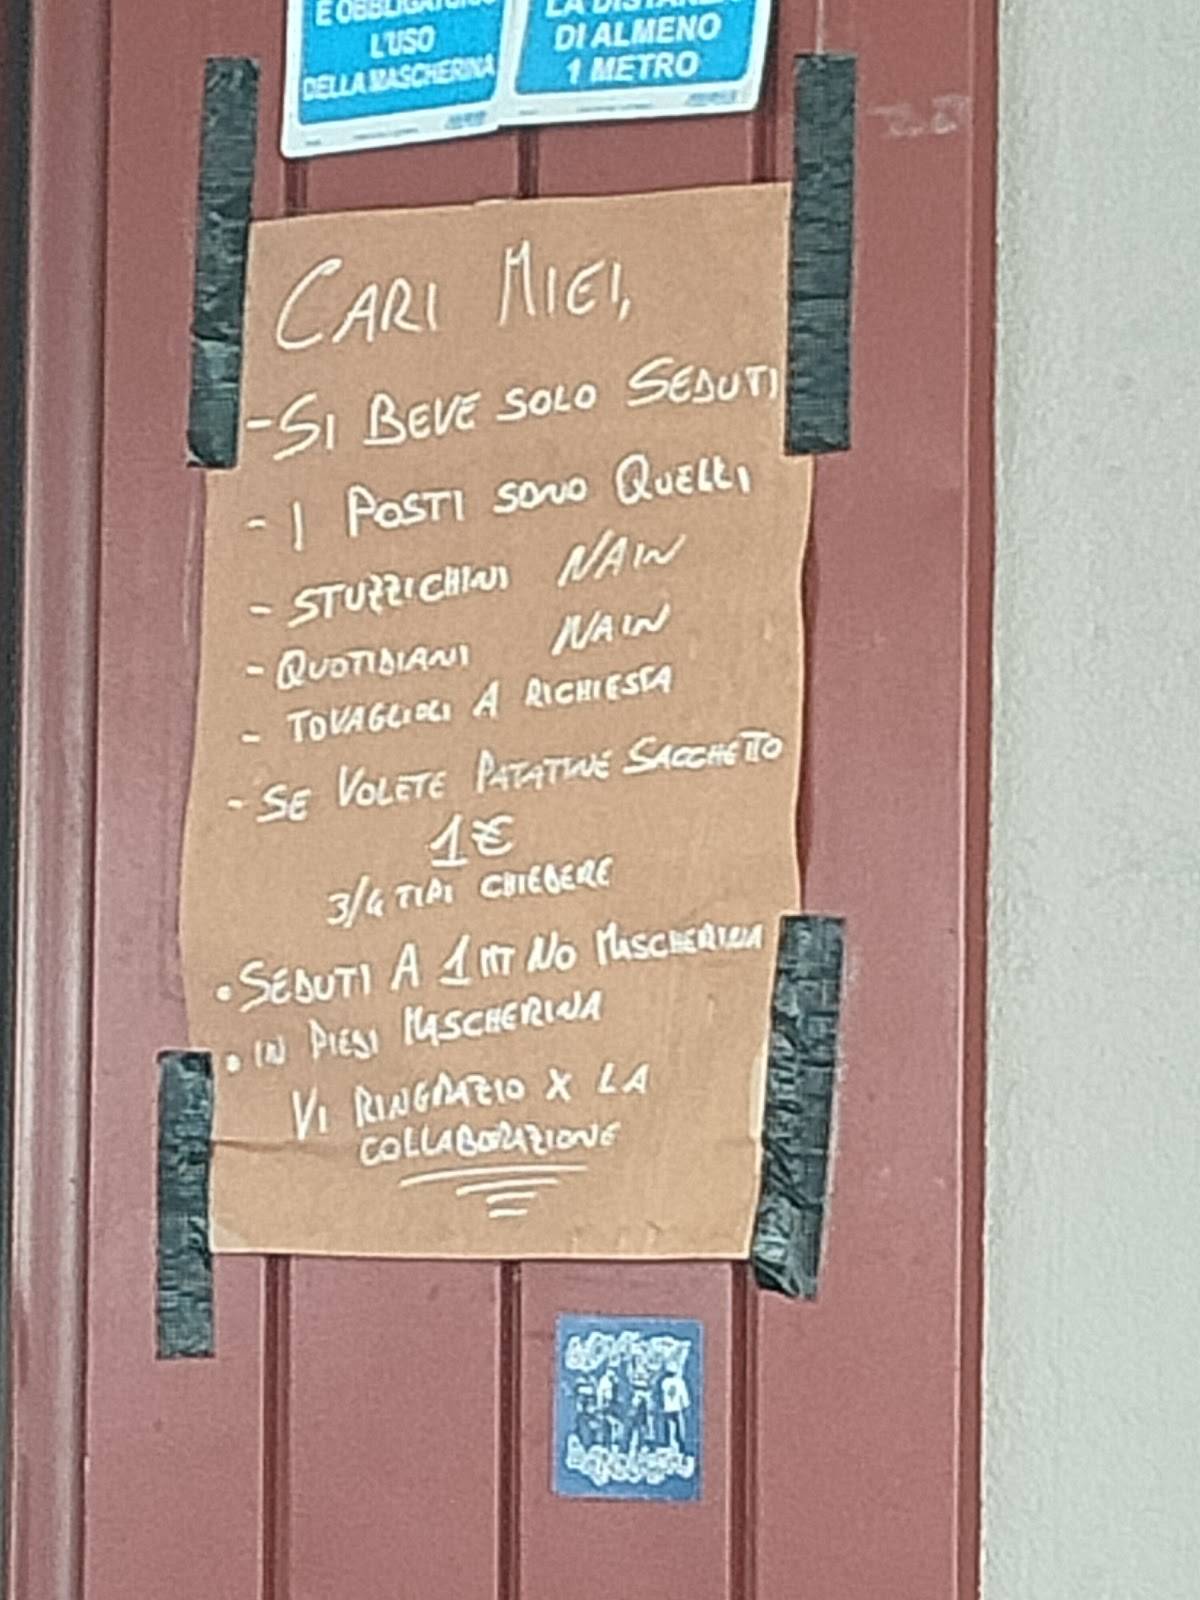 L'USO
DELLA MASCHERINA
DI ALMENO
1 METRO
CARI MIEI,
- SI BEVE SOLO SEDUTI
- I POSTI SONO QUELLI
- STUZZICHINI NAIN
- QUOTIDIANI NAIN
- TOVAGLIOLI A RICHIESTA
- SE VOLETE PATATINE SACCHETTO
1€
3/4 TIPI CHIEDERE
• SEDUTI A 1 MT NO MASCHERINA
• IN PIEDI MASCHERINA
VI RINGRAZIO X LA
COLLABORAZIONE